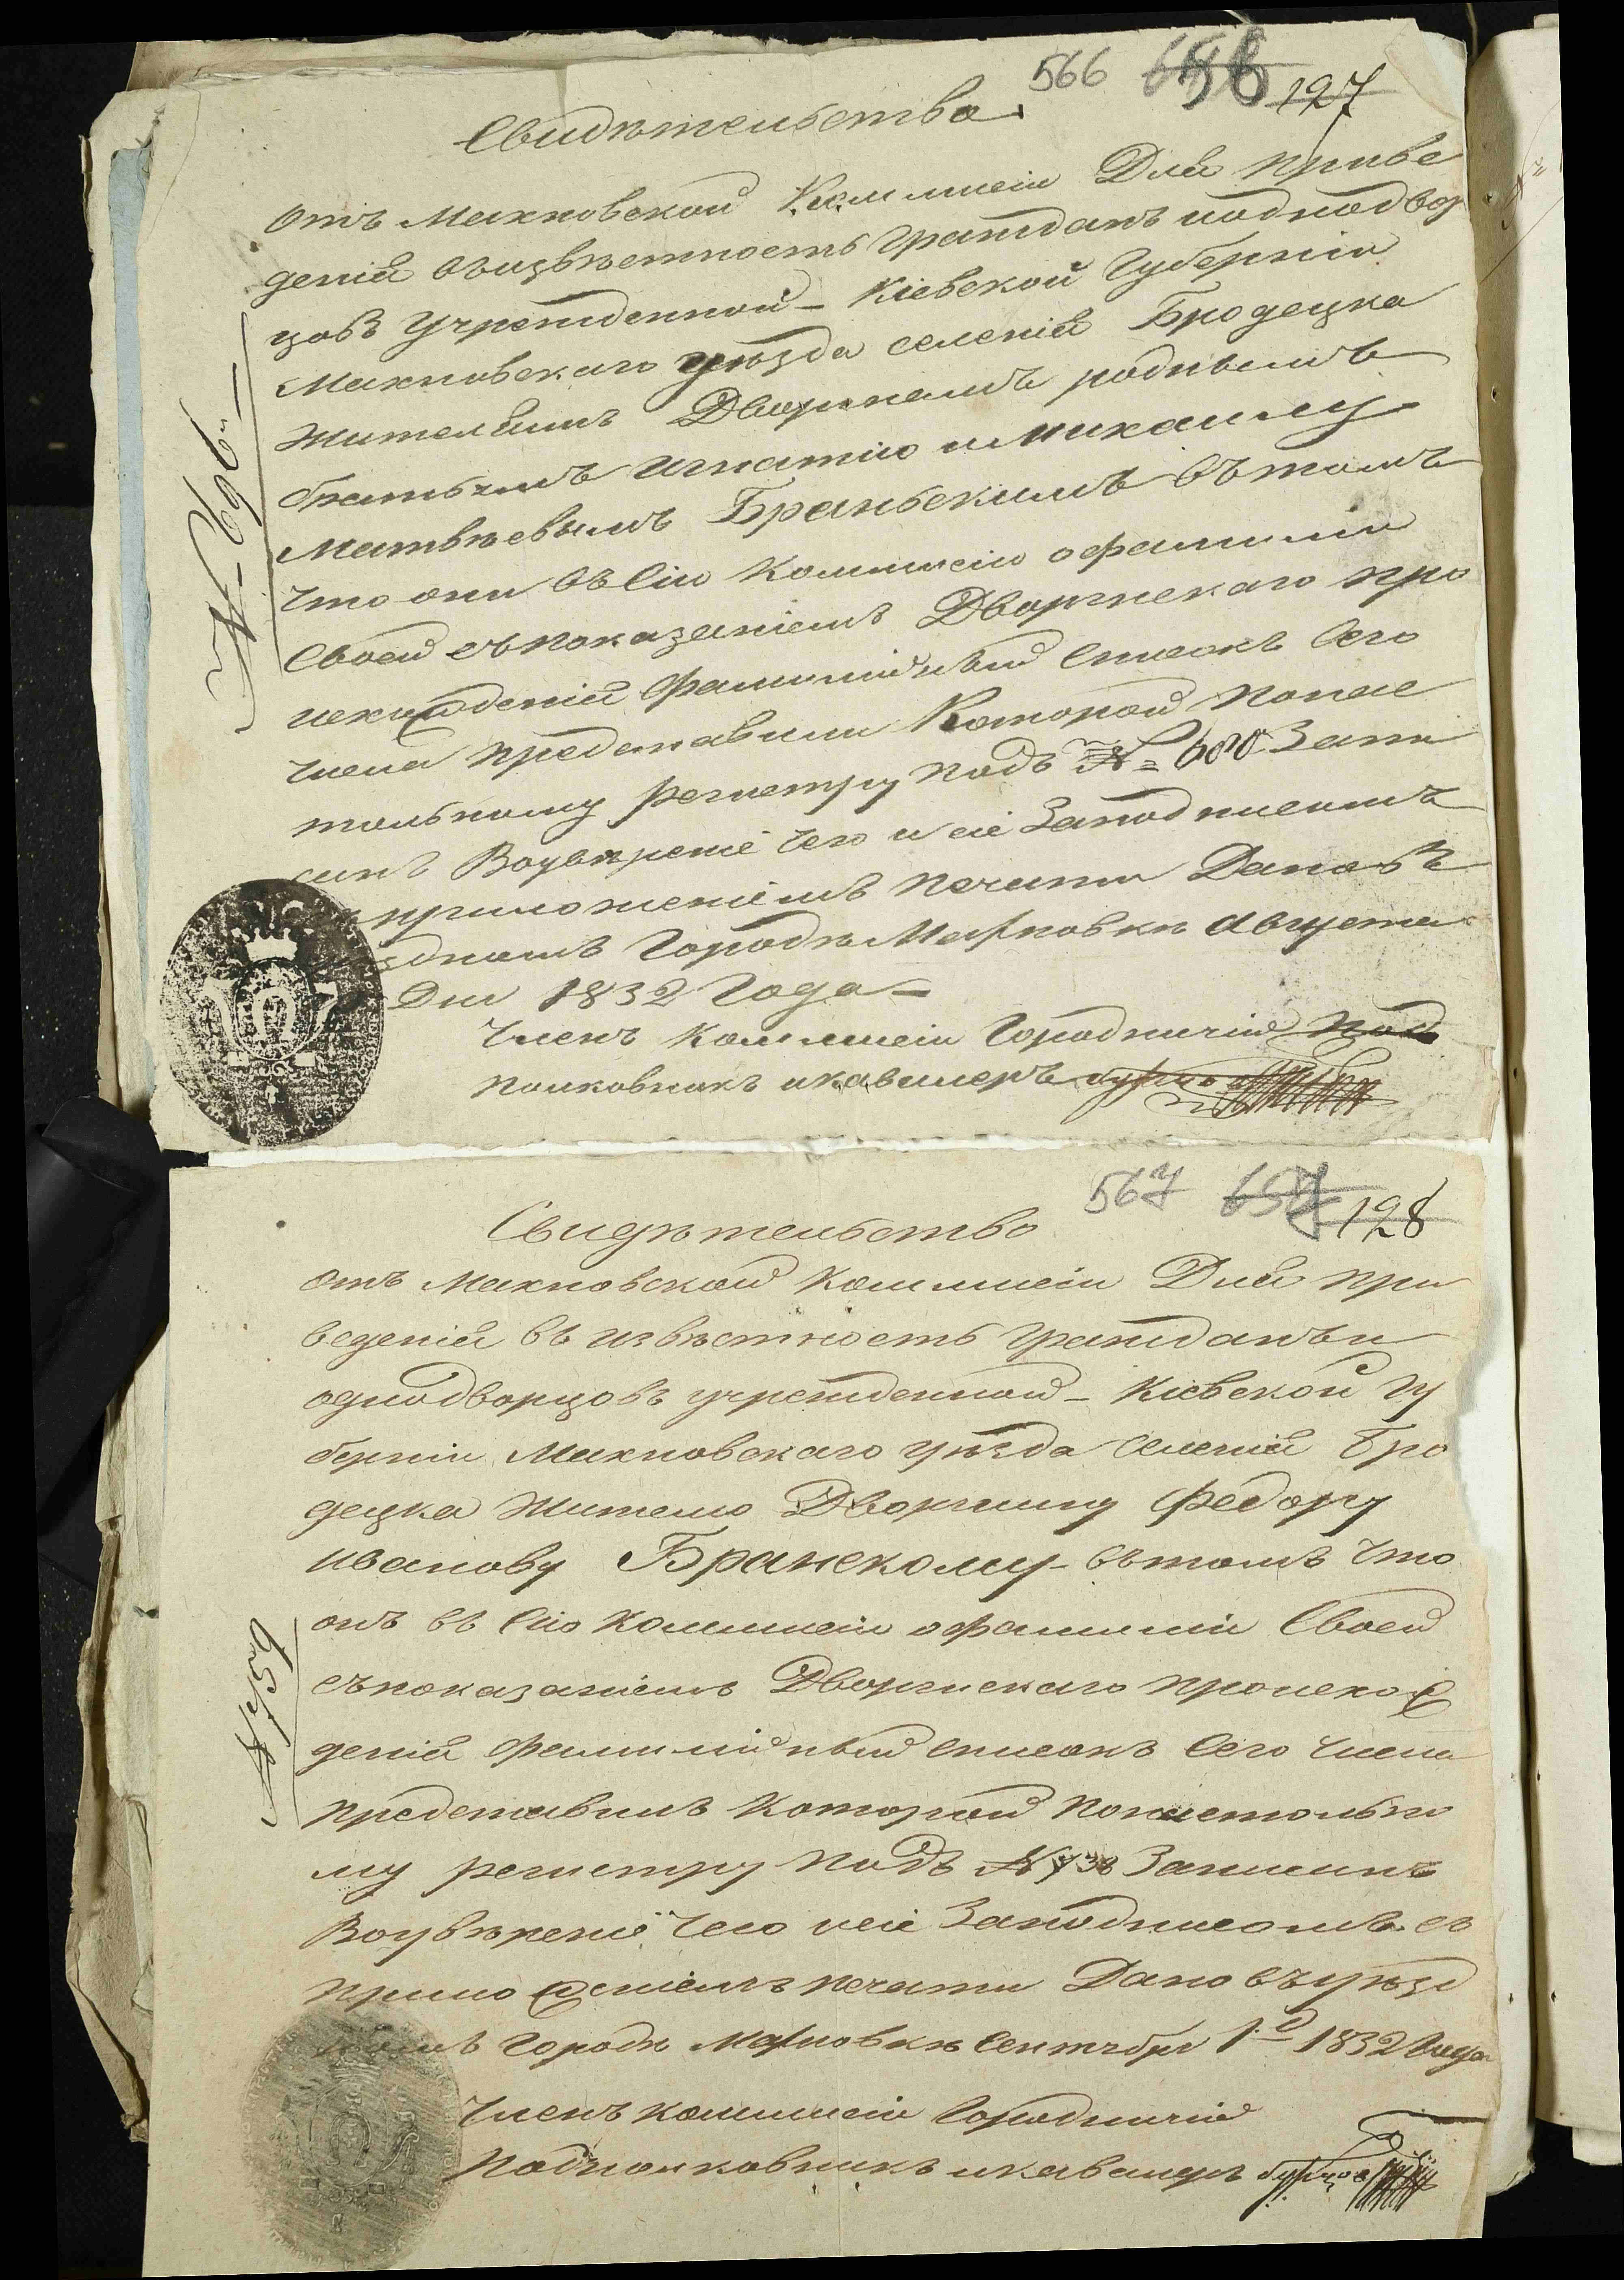 566 656 127
Свидѣтельство.
Отъ Махновской Коммисіи Для приве
денія въ извѣстность гражданъ и однодвор
цовъ учрежденной - Кіевской Губерніи
Махновскаго уѣзда селенія Бродецка
жителямъ Дворянамъ роднымъ
братьямъ Игнатію и Михаилу
Матвѣевымъ Браньскимъ въ томъ
что они въ Сію Коммисію о фамиліи
Своей съ показаніемъ Дворянскаго про
исхожденія Фамилійный списокъ Сего
числа представили Которой понас
тольному регистру подъ № Запи
санъ Воувѣреніе чего и сіе Заподписомъ
приложеніемъ печати Дано въ
уѣздномъ Городѣ Махновкѣ Августа
Дня 1832 Года
Членъ Коммисіи Городничій Под
полковникъ и кавалеръ
567 657 128
Свидѣтельство
Отъ Махновской Коммисіи Для при
веденія въ извѣстность гражданъ и
однодворцовъ учрежденной - Кіевской Гу
берніи Махновскаго уѣзда Селенія Бро
децка жителю Дворянину Федору
Иванову Бранскому въ томъ что
онъ въ Сію Коммисію о фамиліи Своей
съ показаніемъ Дворянскаго происхож
денія фамилійный списокъ Сего числа
представилъ Которой понастольно
му регистру подъ № Записанъ
Воувѣреніе чего и сіе Заподписомъ съ
приложеніемъ печати Дано въ уѣзд
номъ городѣ Махновкѣ Сентября 1 д 1832 Года
Членъ коммисіи Городничій
Подполковникъ и кавалеръ